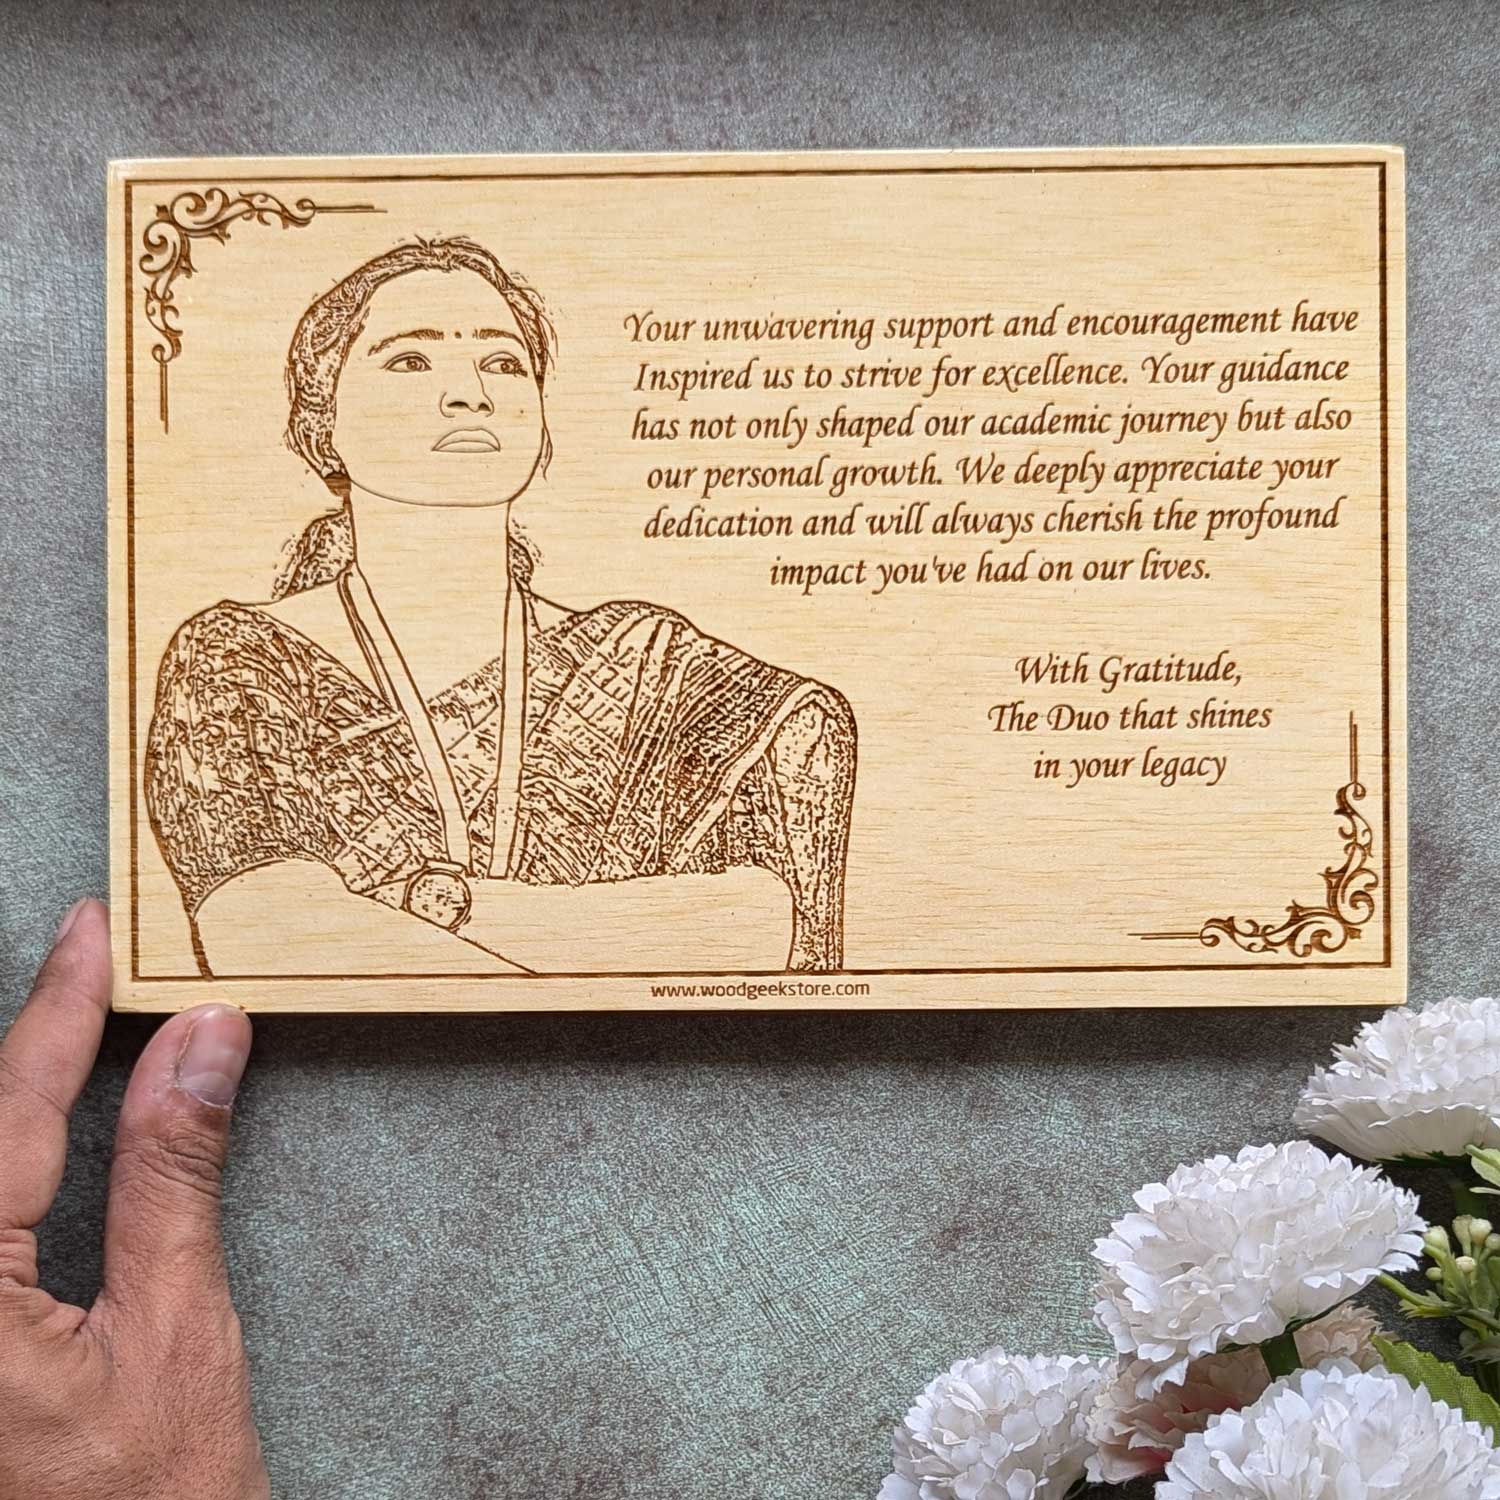 Your unwavering support and encouragement have
Inspired us to strive for excellence. Your guidance
has not only shaped our academic journey but also
our personal growth. We deeply appreciate your
dedication and will always cherish the profound
impact you've had on our lives.
With Gratitude,
The Duo that shines
in your legacy
www.woodgeekstore.com